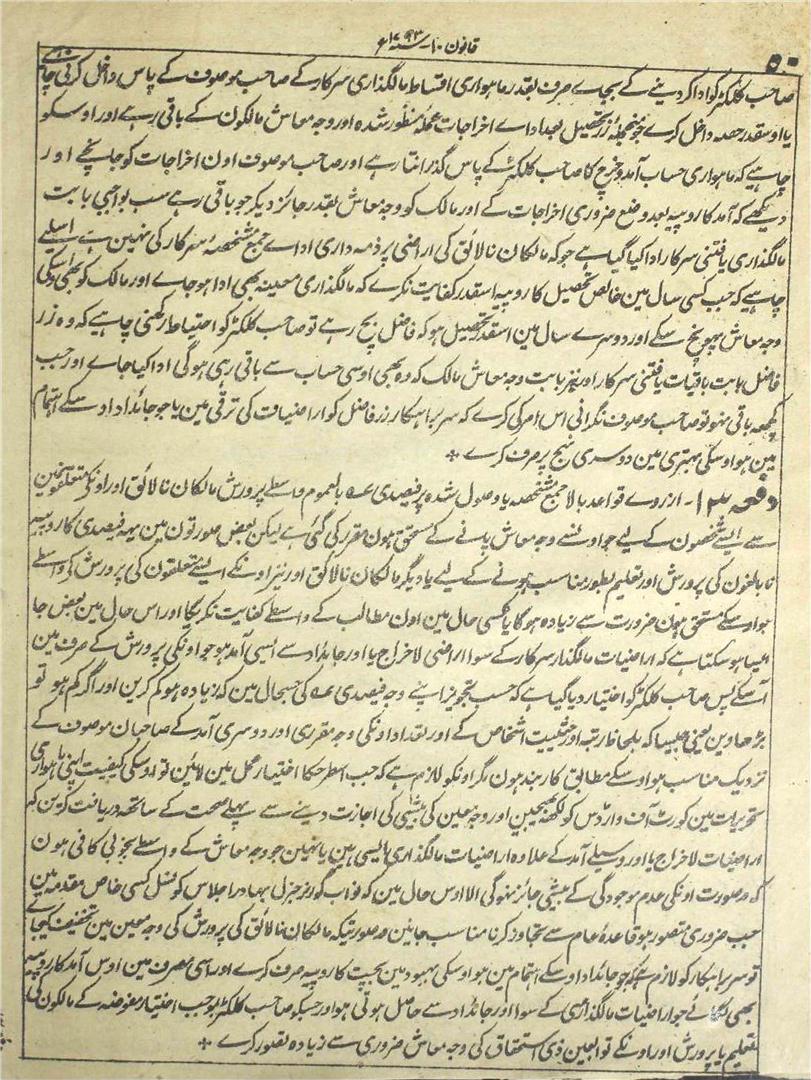 ۵۰
قانون ۱۰ - سنہ ۱۷۹۳ء
صاحب کلکٹر کو ادا کر دینے کے بجاے صرف بقدر ماہواری اقساط مالگذاری سرکار کے صاحب موصوف کے پاس داخل کرنی چاہیے
یا اوسقدر حصہ داخل کرے جو منجملہ زر تحصیل بعد اداے اخراجات عملہ منظور شدہ اور وجہ معاش مالکون کے باقی رہے اور اوسکو
چاہیے کہ ماہواری حساب آمد و خرچ کا صاحب کلکٹر کے پاس گذرانتا رہے اور صاحب موصوف اون اخراجات کو جانچے اور
دیکھے کہ آمد کا روپیہ بعد وضع ضروری اخراجات کے اور مالک کو وجہ معاش بقدر جائز دیکر جو باقی رہے سب بواجبی بابت
مالگذاری یافتنی سرکار ادا کیا گیا ہے جو کہ مالکان نالائق کی اراضی پر ذمہ داری اداے جمع مشخصہ سرکار کی نہین ہے اسلیے
چاہیے کہ جب کسی سال مین خالص تحصیل کا روپیہ اسقدر کفایت نکرے کہ مالگذاری معینہ بھی ادا ہو جاے اور مالک کو بھی اوسکی
وجہ معاش پہونچ سکے اور دوسرے سال مین اسقدر تحصیل ہو کہ فاضل بچ رہے تو صاحب کلکٹر کو احتیاط رکھنی چاہیے کہ وہ زر
فاضل بابت باقیات یافتنی سرکار اور نیز بابت وجہ معاش مالک کہ وہ بھی اوسی حساب سے باقی رہی ہوگی ادا کیا جاے اور جب
کچھ باقی نہو تو صاحب موصوف نگرانی اس امر کی کرے کہ سربراہکار زر فاضل کو اراضیات کی ترقی مین یا جو جائداد اوسکے اہتمام
مین ہو اوسکی بہتری مین دوسری نہج پر صرف کرے ٭
دفعہ ۱۲ - ازروے قواعد بالا جمع مشخصہ یا وصول شدہ پر فیصدی عہ بالعموم واسطے پرورش مالکان نالائق اور اونکے متعلقون مین
سے ایسے شخصون کے لیے جو اونسے وجہ معاش پانے کے مستحق ہون مقرر کی گئی ہے لیکن بعض صورتون مین یہہ فیصدی کا روپیہ
نابالغون کی پرورش اور تعلیم بطور مناسب ہونے کے لیے یا دیگر مالکان نالائق اور نیز اونکے ایسے متعلقون کی پرورش کے واسطے
جو اوسکے مستحق ہون ضرورت سے زیادہ ہوگا یا کسی حال مین اون مطالب کے واسطے کفایت نکریگا اور اس حال مین بعض جا
ایسا ہو سکتا ہے کہ اراضیات مالگذار سرکار کے سوا اراضی لاخراج یا اور جائداد سے ایسی آمد ہو جو اونکی پرورش کے صرف مین
آسکے پس صاحب کلکٹر کو اختیار دیا گیا ہے کہ حسب تجویز اپنے وجہ فیصدی عہ کی جس حال مین کہ زیادہ ہو کم کرین اور اگر کم ہو تو
بڑھاوین یعنی جیسا کہ بلحاظ رتبہ اور حیثیت اشخاص کے اور تعداد اونکی وجہ مقرری اور دوسری آمد کے صاحبان موصوف کے
نزدیک مناسب ہو اوسکے مطابق کاربند ہون مگر اونکو لازم ہے کہ جب اسطرحکا اختیار عمل مین لائین تو اوسکی کیفیت اپنی ماہواری
تحریرات مین کورٹ آف وارڈس کو لکھ بھیجین اور وجہ معین کی بیشی کی اجازت دینے سے پہلے صحت کے ساتھ دریافت کرین کہ
اراضیات لاخراج یا اور وسیلے آمد کے علاوہ اراضیات مالگذاری ایسی ہین یا نہین جو وجہ معاش کے واسطے بخوبی کافی ہون
کہ درصورت اونکی عدم موجودگی کے بیشی جائز نہوگی الا اوس حال مین کہ نواب گورنر جنرل بہادر اجلاس کونسل کسی خاص مقدمہ مین
جب ضروری متصور ہو قاعدۂ عام سے تجاوز کرنا مناسب جانین درصورتیکہ مالکان نالائق کی پرورش کی وجہ معین مین تخفیف کیجاے
تو سربراہکار کو لازم ہے کہ جو جائداد اوسکے اہتمام مین ہو اوسکی بہبود مین بچت کا روپیہ صرف کرے اور اسی مصرف مین اوس آمد کا روپیہ
بھی لگائے جو اراضیات مالگذاری کے سوا اور جائداد سے حاصل ہوتی ہو اور جسکو صاحب کلکٹر بموجب اختیار مفوضہ کے مالکون کی
تعلیم یا پرورش اور اونکے توابعین ذی استحقاق کی وجہ معاش ضروری سے زیادہ تصور کرے ٭